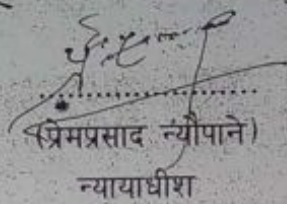 (प्रेमप्रसाद न्यौपाने)
न्यायाधीश